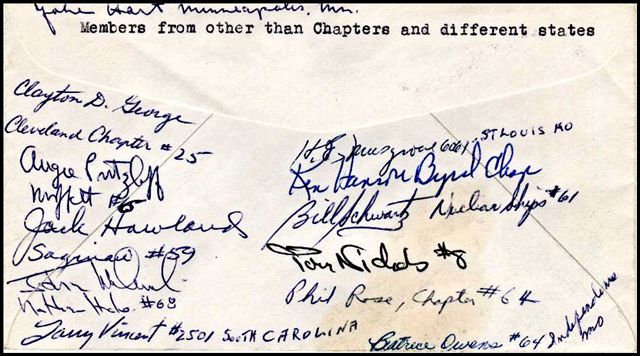 John Hart Minneapolis, Mn.
Members from other than Chapters and different states
Clayton D. George
Cleveland Chapter # 25
Augie Pritzlaff
Moffett #6
Jack Howland
Saginaw #59
John
#68
Larry Vincent #2501 SOUTH CAROLINA
H.E. 6061 - ST LOUIS MO
Ken Hanson Byrd Chap
Bill Schwartz Nuclear Ships #61
Tom Nichols #8
Phil Rose, Chapter #64
Beatrice Owens #64 Independence Mo